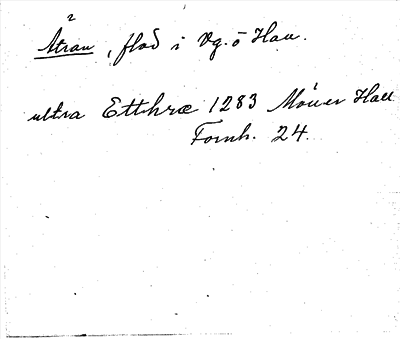 2
Ätran, flod i Vg. o Hall.
ultra Etthræ 1283 Möller Hall
Fornh. 24.